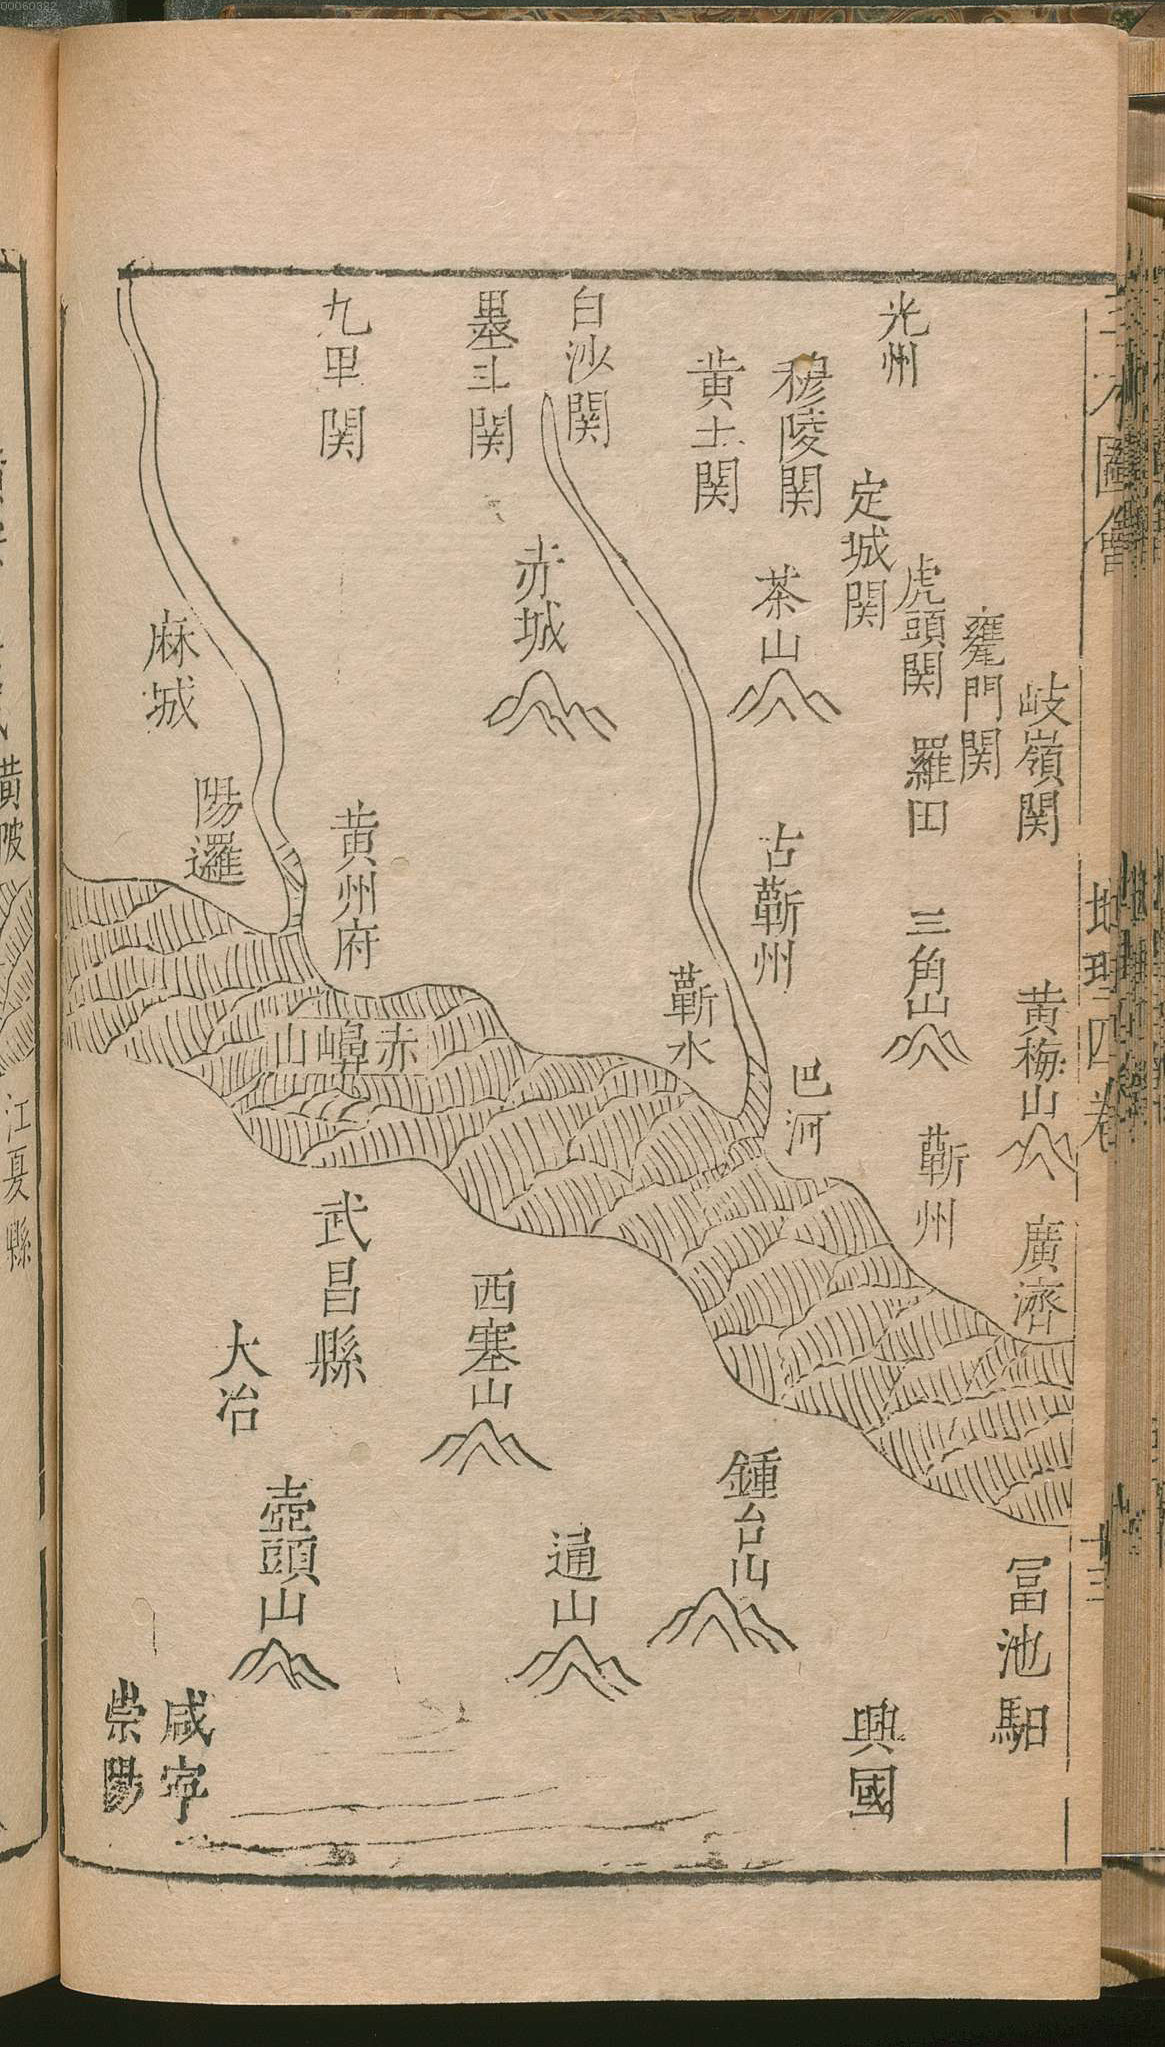 00060322
三才圖會
地理四卷
十三
光州
岐嶺関
甕門関
虎頭関
定城関
穆陵関
黄土関
白沙関
墨斗関
九里関
茶山
羅田
赤城
麻城
陽邏
黄州府
古蘄州
三角山
黄梅山
蘄水
巴河
蘄州
廣濟
赤嶼山
武昌縣
西塞山
大冶
鍾台山
壺頭山
通山
冨池
興國
咸寧
崇陽
黄陂
江夏縣